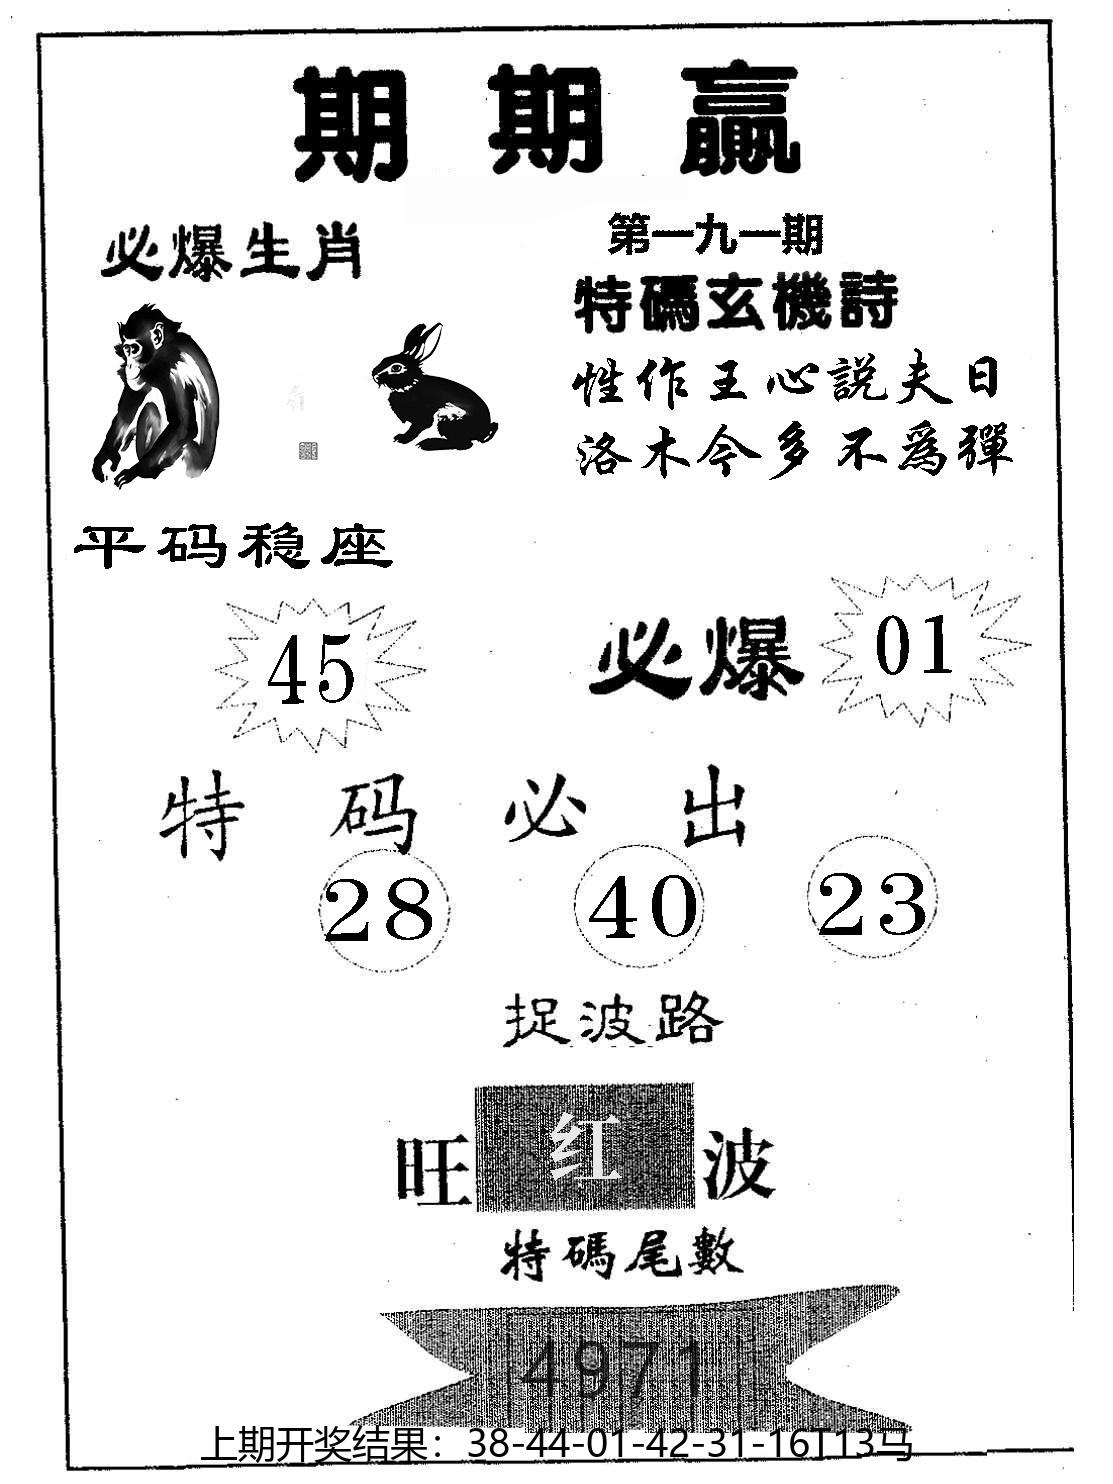 期期贏
必爆生肖
第一九一期
特碼玄機詩
性作王心說夫日
洛木今多不為彈
平码稳座
45
必爆 01
特码必出
28 40 23
捉波路
旺 红 波
特碼尾數
4971
上期开奖结果：38-44-01-42-31-16T13马